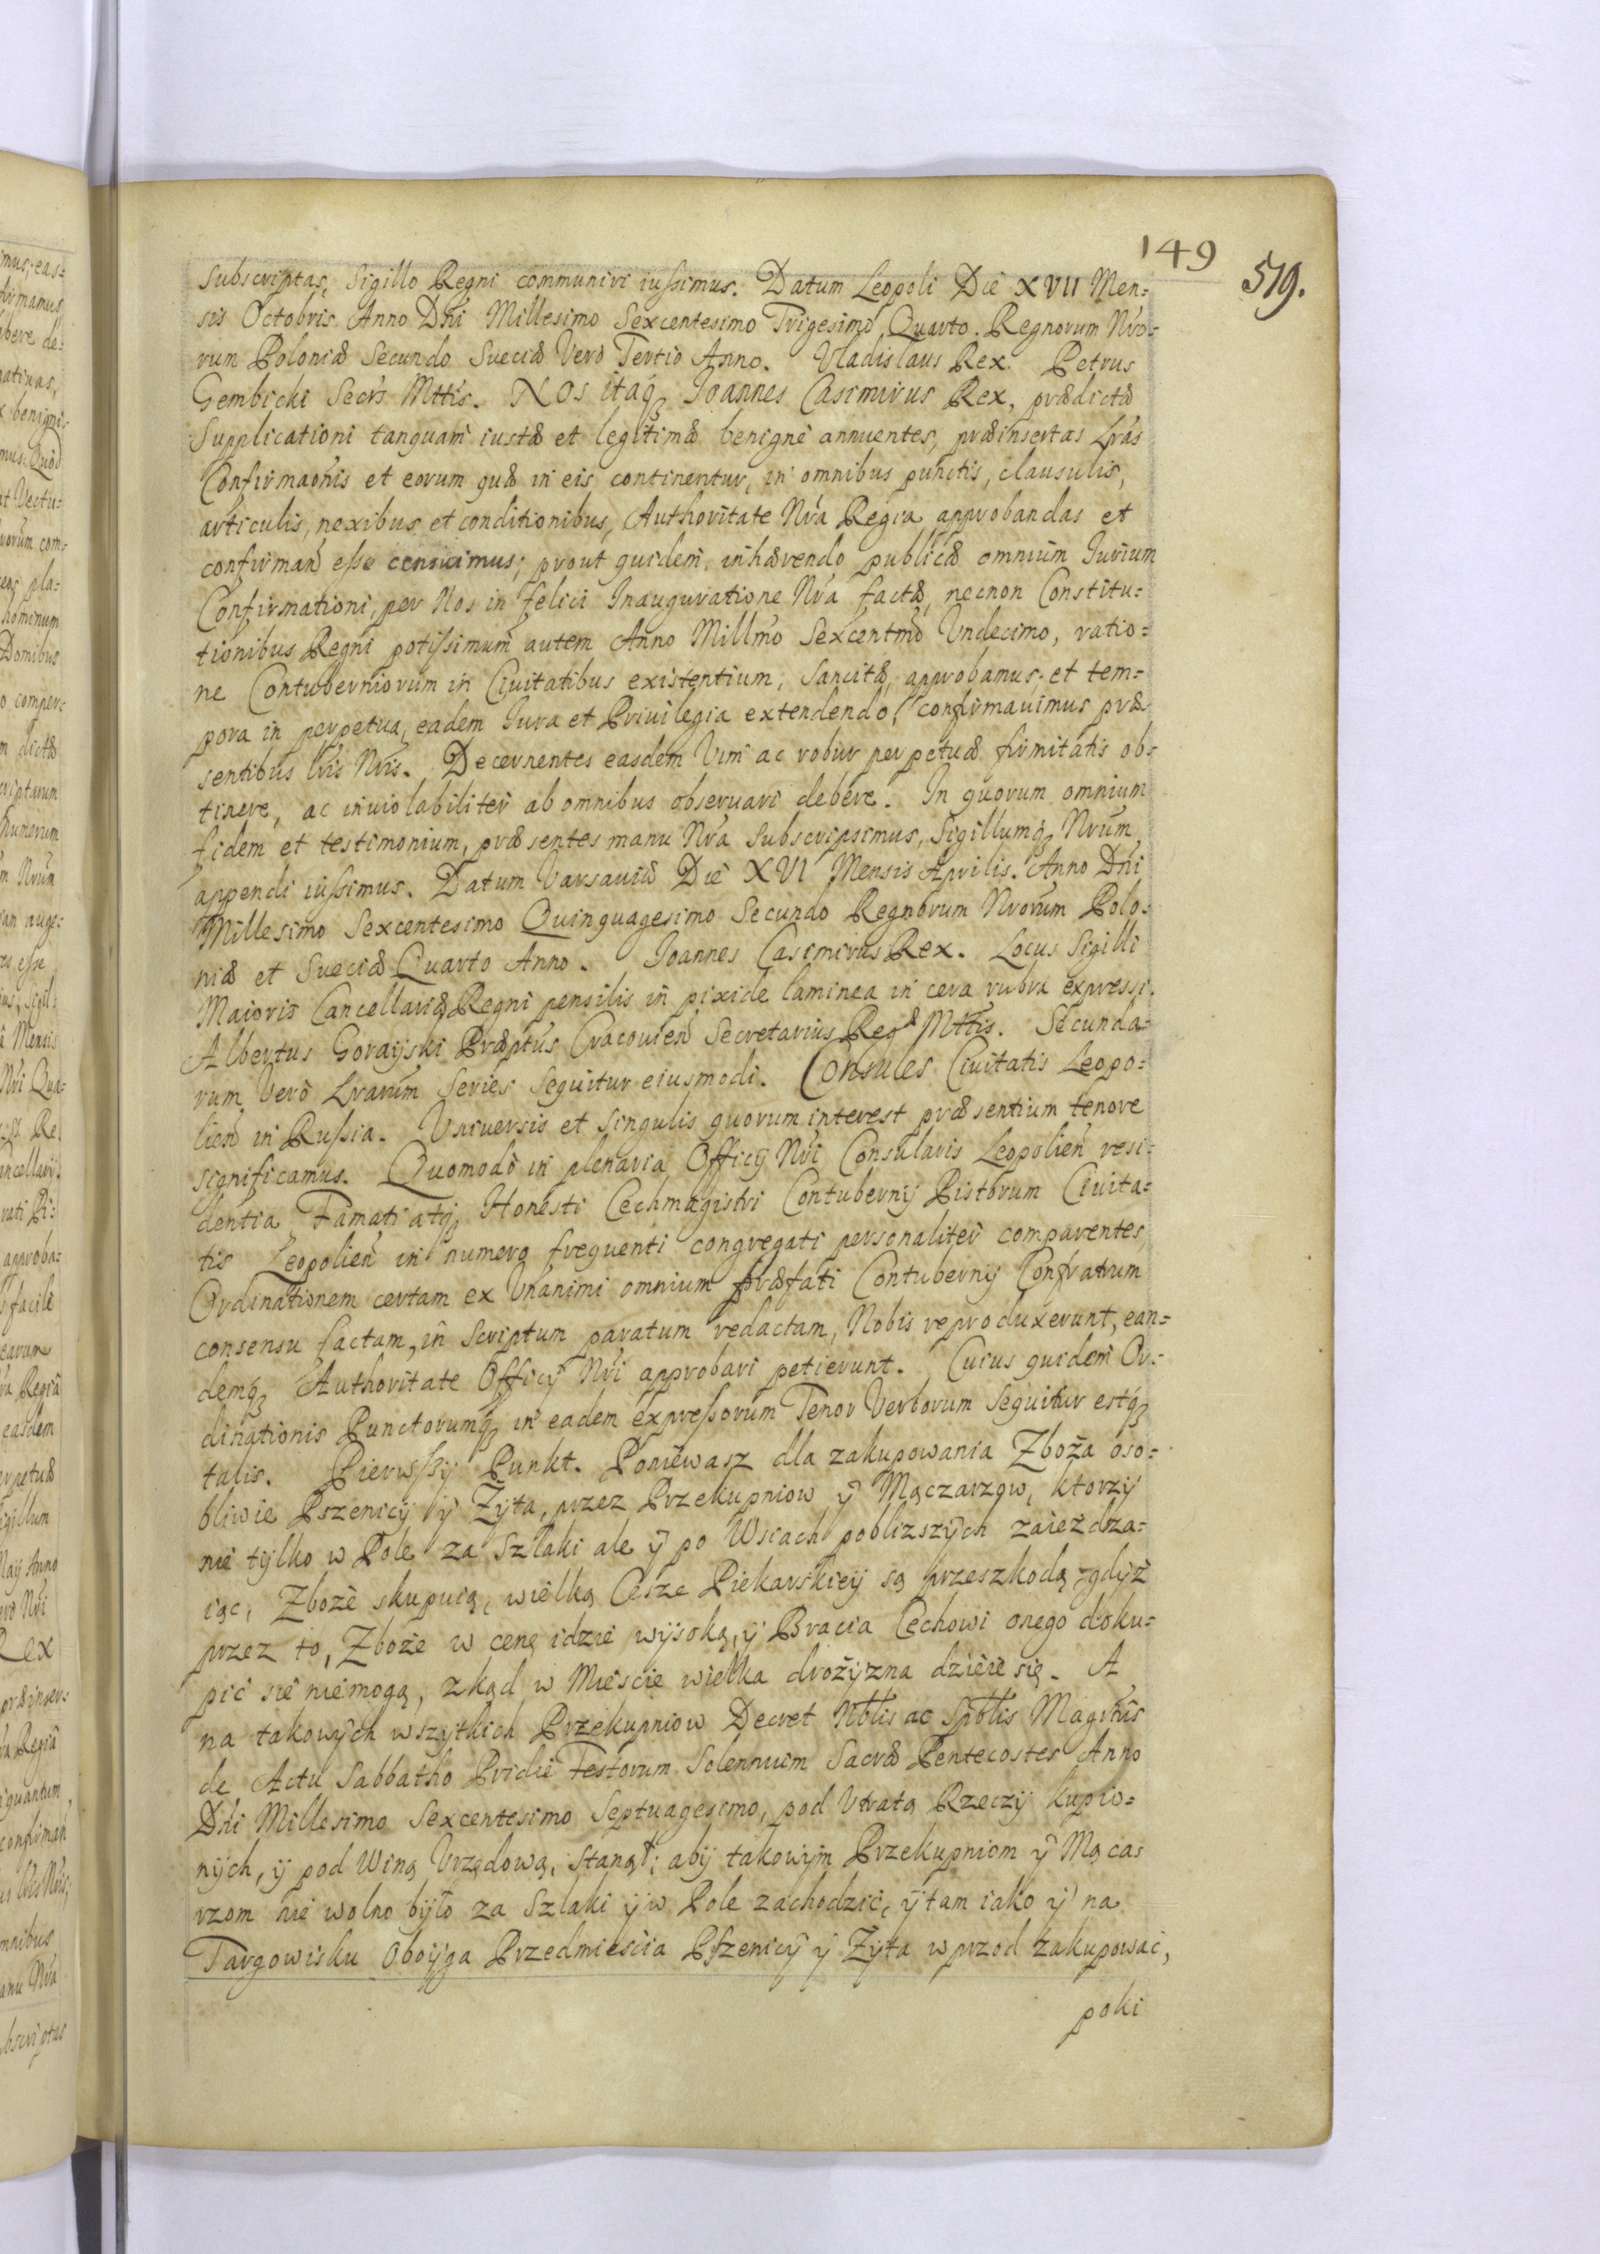 149
519.
subscriptas, Sigillo Regni communiri iussimus. Datum Leopoli Die XVII Men:
sis Octobris Anno Dńi Millesimo Sexcentesimo Trigesimo Quarto. Regnorum Nro:
rum Poloniæ Secundo Sueciæ Verò Tertio Anno. Vladislaus Rex. Petrus
Gembicki Secrs Mttis. NOS itaq Joannes Casimirus Rex, prædictæ
Supplicationi tanquam iustæ et legitimæ benignè annuentes, præinsertas Lras
Confirmaonis et eorum quæ in eis continentur, in omnibus punctis, clausulis,
articulis, nexibus et conditionibus, Authoritate Nra Regia approbandas et
confirman esse censuimus; prout quidem inhærendo publicæ omnium Iurium
Confirmationi, per Nos in felici Inauguratione Nra factæ, necnon Constitu:
tionibus Regni potissimum autem Anno Millmo Sexcentmo Vndecimo, ratio:
ne Contuberniorum in Ciuitatibus existentium, Sancitæ, approbamus, et tem:
pora in perpetua, eadem Iura et Priuilegia extendendo, confirmauimus præ
sentibus Lris Nris. Decernentes easdem Vim ac robur perpetuæ firmitatis ob:
tinere, ac inuiolabiliter ab omnibus obseruari debere. In quorum omnium
fidem et testimonium, præsentes manu Nra Subscripsimus, Sigillumq Nrum
appendi iussimus. Datum Varsauiæ Die XVI Mensis Aprilis. Anno Dńi
Millesimo Sexcentesimo Quinquagesimo Secundo Regnorum Nrorum Polo:
niæ et Sueciæ Quarto Anno. Joannes Casimirus Rex. Locus Sigilli
Maioris Cancellariæ Regni pensilis in pixide laminea in cera rubra expressi.
Albertus Gorayski Præptus Cracouien Secretarius Regæ Mttis. Secunda:
rum Verò Lrarum Series Sequitur eiusmodi. Consules Ciuitatis Leopo:
lien in Russia. Vniuersis et Singulis quorum interest præsentium tenore
significamus. Quomodò in plenaria Officÿ Nri Consularis Leopolien resi:
dentia Famati atq Honesti Cechmagistri Contubernÿ Pistorum Ciuita:
tis Leopolien in numero frequenti congregati personaliter comparentes,
Ordinationem certam ex Vnanimi omnium præfati Contubernÿ Confratrum
consensu factam, in Scriptum paratum redactam, Nobis reproduxerunt, ean:
demq Authoritate Officÿ Nri approbari petierunt. Cuius quidem Or:
dinationis Punctorumq in eadem expressorum Tenor Verborum Sequitur estq
talis. Pierwszÿ Punkt. Poniewasz dla zakupowania Zboża oso:
bliwie Pszenicÿ ÿ Zÿta, przez Przekupniow ÿ Mączarzow, ktorzÿ
nie tÿlko w Pole za Szlaki ale ÿ po Wsiach poblizszÿch zaieżdza:
iąc, Zboże skupuią, wielką Cesze Piekarskieÿ są przeszkodą, gdÿż
przez to, Zboże w cenę idzie wÿsoką, ÿ Bracia Cechowi onego doku:
pić się niemogą, zkąd w Miescie wielka drożÿzna dzieie się. A
na takowÿch wszÿtkich Przekupniow Decret Nblis ac Spblis Magrtus
de Actu Sabbatho Pridie Festorum Solennium Sacræ Pentecostes Anno
Dńi Millesimo Sexcentesimo Septuagesimo, pod Vtratą Rzeczÿ kupio:
nÿch, ÿ pod Winą Vrzędową, stanął; abÿ takowÿm Przekupniom ÿ Mącza:
rzom nie wolno bÿło za Szlaki ÿ w Pole zachodzić, ÿ tam iako ÿ na
Targowisku Oboÿga Przedmieścia Pszenicÿ ÿ Zÿta wprzod zakupować,
poki